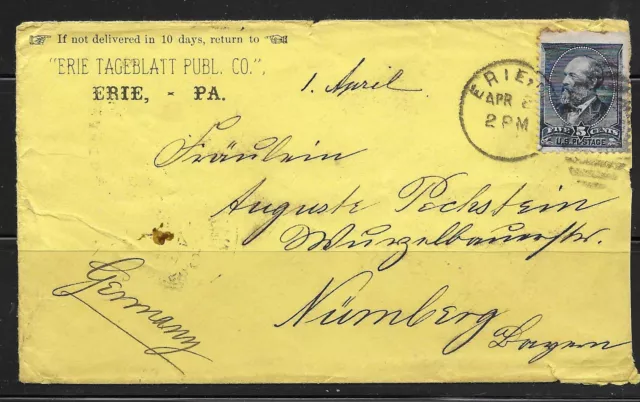 If not delivered in 10 days, return to
"ERIE TAGEBLATT PUBL. CO.",
ERIE, - PA.
1. April
ERIE,
APR
2 PM
FIVE 5 CENTS
U.S. POSTAGE
Fräulein
Auguste Pechstein
Wurzelbauerstr.
Nürnberg
Bayern
Germany